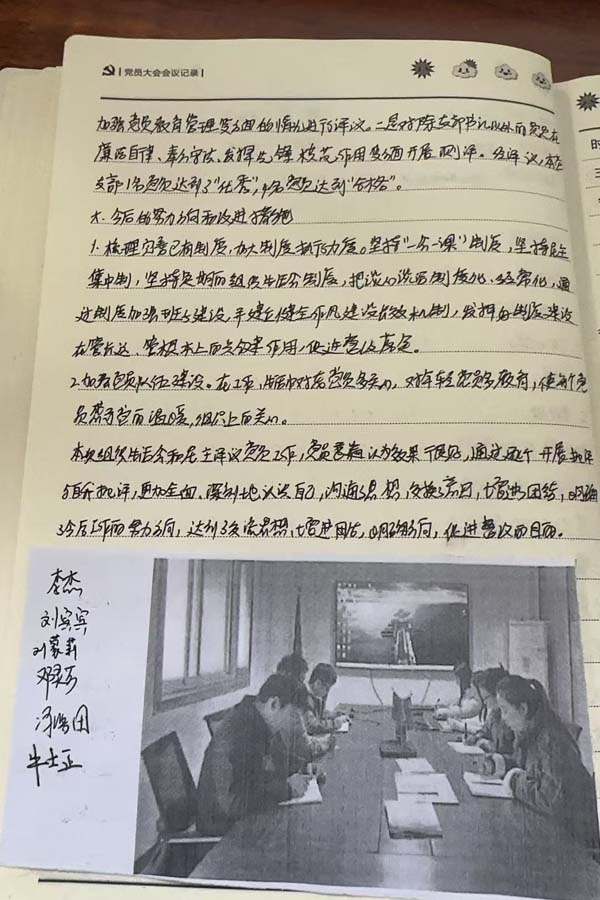 党员大会会议记录
加强党员教育管理等方面的情况进行评议。二是对除支部书记以外的党员在
廉洁自律、奉公守法、发挥先锋模范作用等方面开展测评。经评议,本
支部1名党员达到了"优秀",4名党员达到"合格"。
六、今后的努力方向和改进措施
1. 梳理完善已有制度,加大制度执行力度。坚持"三会一课"制度,坚持民主
集中制,坚持定期的组织生活会制度,把谈心谈话制度化、经常化,通
过制度加强班子建设,并建立健全作风建设长效机制,发挥好制度建设
在管长远、管根本上的关键作用,促进整改落实。
2. 加强党员队伍建设。在工作,生活中对老党员多关心,对年轻党员多教育,使每个党
员感受党的温暖,组织上的关心。
本次组织生活会和民主评议党员工作,党员普遍认为效果很好,通过这个开展批评
与自我批评,更加全面、深刻地认识自己,沟通了思想,交换了意见,增进团结,明确
了今后工作的努力方向,达到了交流思想,增进团结,明确方向,促进整改的目的。
李杰
刘宾宾
牛士正